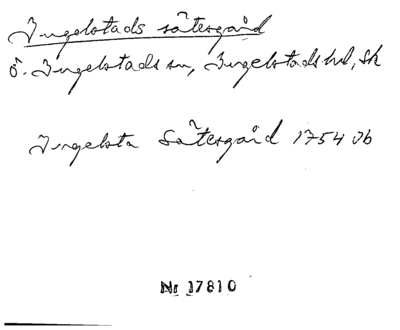 Ingelstads sätesgård
Ö. Ingelstads sn, Ingelstads hd, Sk
Ingelsta Sätesgård 1754 Ob
Nr 17810